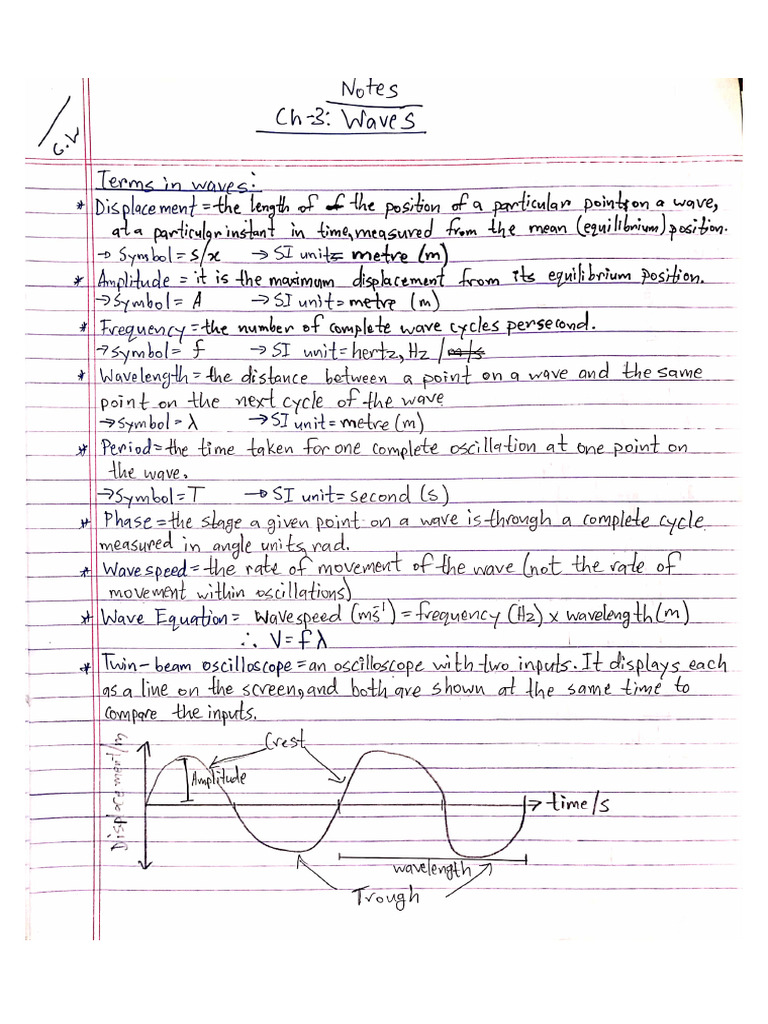 Notes
Ch-3: Waves
G.W
Terms in waves:
* Displacement = the length of the position of a particular point on a wave,
at a particular instant in time, measured from the mean (equilibrium) position.
→ Symbol = s/x → SI unit = metre (m)
* Amplitude = it is the maximum displacement from its equilibrium position.
→ Symbol = A → SI unit = metre (m)
* Frequency = the number of complete wave cycles per second.
→ Symbol = f → SI unit = hertz, Hz / m/s
* Wavelength = the distance between a point on a wave and the same
point on the next cycle of the wave
→ Symbol = λ → SI unit = metre (m)
* Period = the time taken for one complete oscillation at one point on
the wave.
→ Symbol = T → SI unit = second (s)
* Phase = the stage a given point on a wave is through a complete cycle
measured in angle units, rad.
* Wave speed = the rate of movement of the wave (not the rate of
movement within oscillations)
* Wave Equation = Wave speed (ms⁻¹) = frequency (Hz) x wavelength (m)
∴ V = f λ
* Twin-beam oscilloscope = an oscilloscope with two inputs. It displays each
as a line on the screen, and both are shown at the same time to
compare the inputs.
Crest
Displacement/m
Amplitude
→ time/s
wavelength
Trough